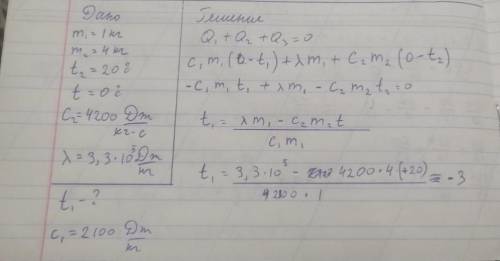 Дано
m₁ = 1 кг
m₂ = 4 кг
t₂ = 20°c
t = 0°c
C₂ = 4200 Дж/кг·c
λ = 3,3·10⁵ Дж/кг
t₁ - ?
c₁ = 2100 Дж/кг
Решение
Q₁ + Q₂ + Q₃ = 0
c₁m₁(0-t₁) + λm₁ + C₂m₂(0-t₂)
-c₁m₁t₁ + λm₁ - c₂m₂t₂ = 0
t₁ = (λm₁ - c₂m₂t)/(c₁m₁)
t₁ = (3,3·10⁵ - 4200·4(+20))/(2100·1) = -3